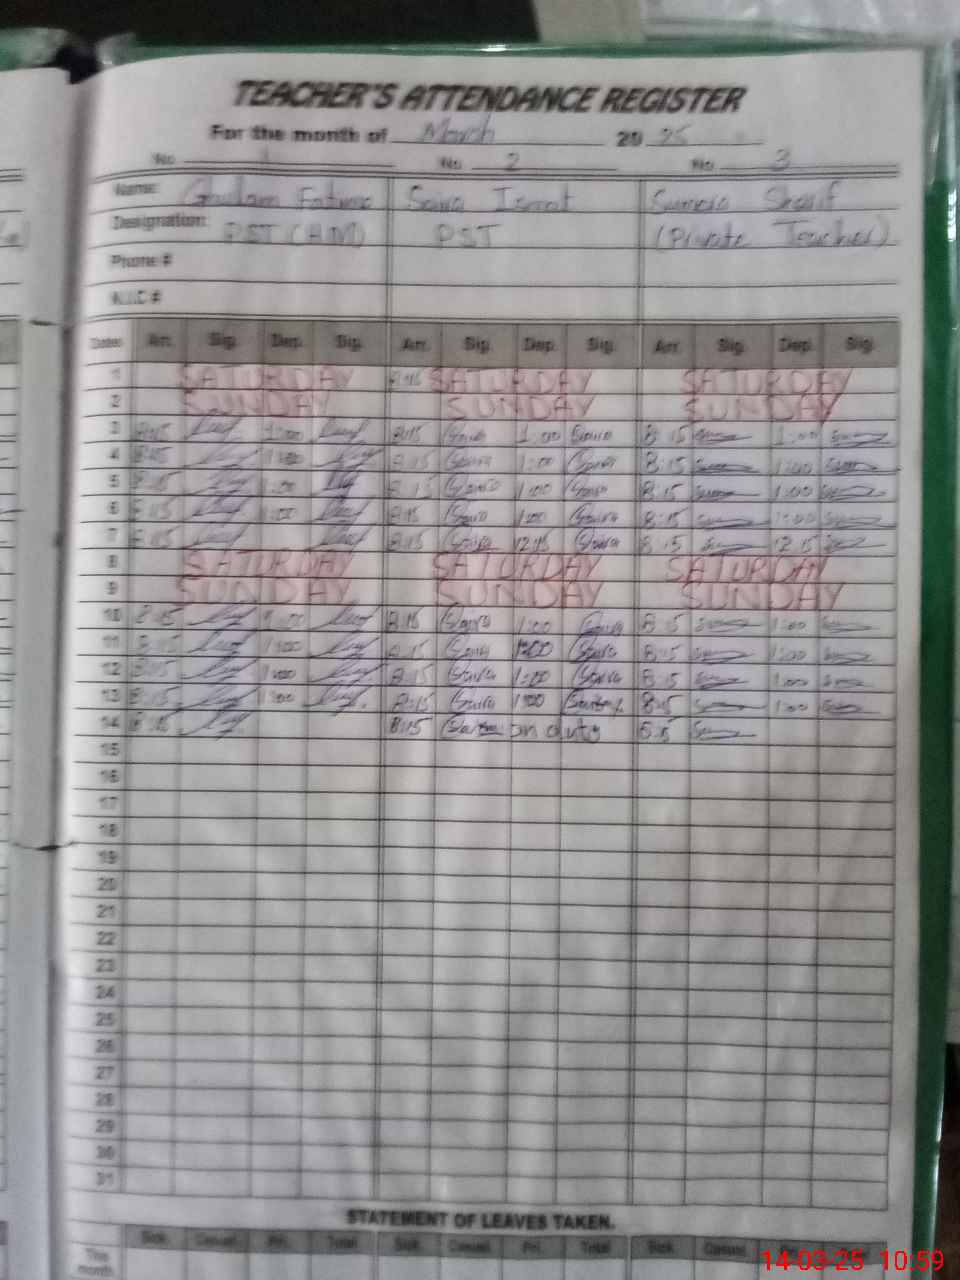 TEACHER'S ATTENDANCE REGISTER
For the month of March 2025
No 1 No 2 No 3
Name: Ghulam Fatima Saira Ismat Sumera Sharif
Designation: PST (HM) PST (Private Teacher)
Phone #
N.I.C #
Dates Arr. Sig. Dep. Sig. Arr. Sig. Dep. Sig. Arr. Sig. Dep. Sig.
1 SATURDAY SATURDAY SATURDAY
2 SUNDAY SUNDAY SUNDAY
3 8:15 1:00 8:15 Saira 1:00 Saira 8:15 1:00
4 8:15 1:00 8:15 Saira 1:00 Saira 8:15 1:00
5 8:15 1:00 8:15 Saira 1:00 Saira 8:15 1:00
6 8:15 1:00 8:15 Saira 1:00 Saira 8:15 1:00
7 8:15 8:15 Saira 12:15 Saira 8:15 12:15
8 SATURDAY SATURDAY SATURDAY
9 SUNDAY SUNDAY SUNDAY
10 8:15 1:00 8:15 Saira 1:00 Saira 8:15 1:00
11 8:15 1:00 8:15 Saira 1:00 Saira 8:15 1:00
12 8:15 1:00 8:15 Saira 1:00 Saira 8:15 1:00
13 8:15 1:00 8:15 Saira 1:00 Saira 8:15 1:00
14 8:15 8:15 Saira on duty 8:15
15
16
17
18
19
20
21
22
23
24
25
26
27
28
29
30
31
STATEMENT OF LEAVES TAKEN.
Sick. Casual. Pri. Total Sick. Casual. Pri. Total Sick. Casual.
This month
14-03-25 10:59